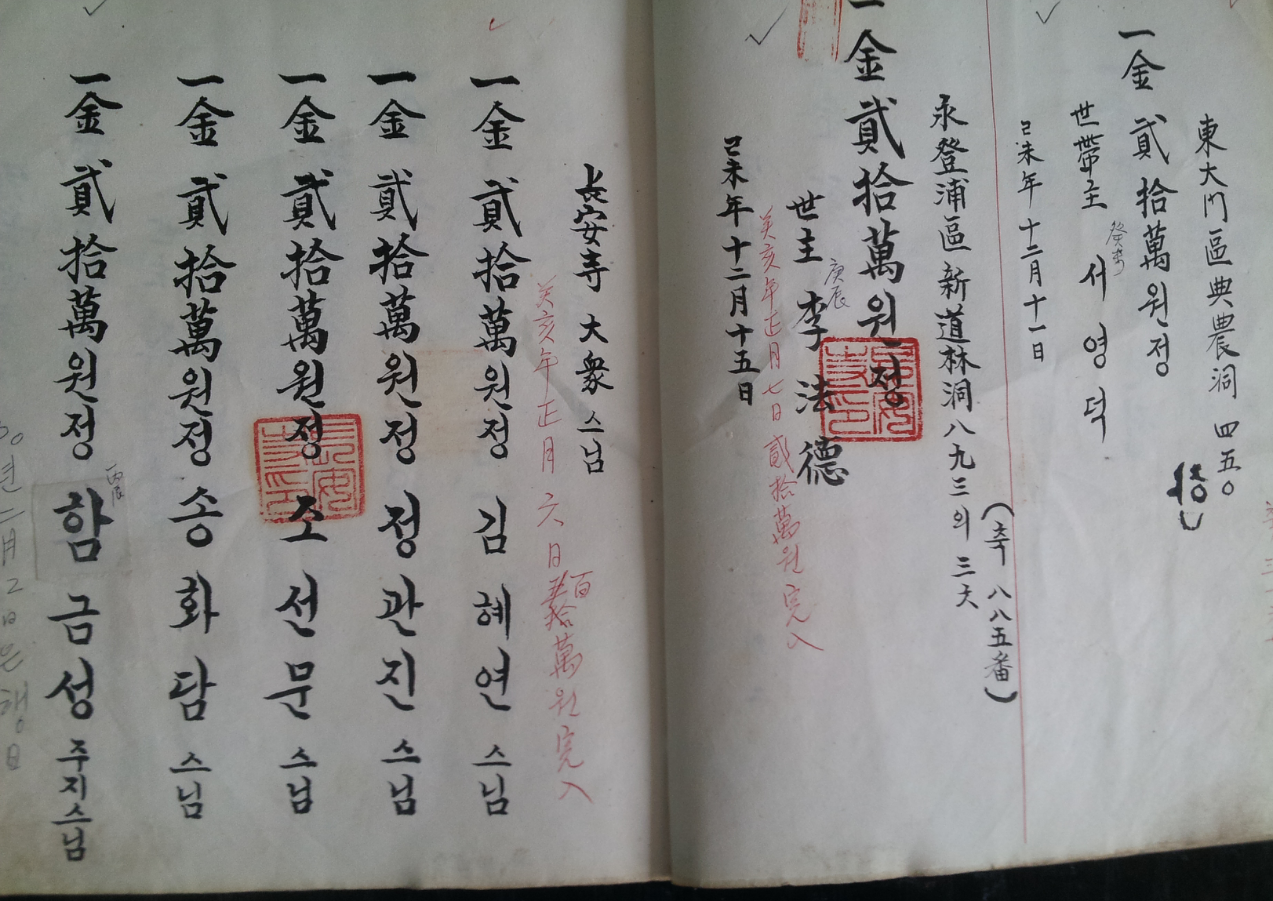 東大門區典農洞 四五〇
一金 貳拾萬원정
世帶主 서영덕
己未年 十二月十一日
(축 八八五番)
永登浦區 新道林洞 八九三의 三大
一金 貳拾萬원정
庚辰
世主 李法德
癸亥年正月七日 貳拾萬원完入
己未年十二月十五日
長安寺 大衆 스님
癸亥年正月六日 百萬원完入
一金 貳拾萬원정 김혜연 스님
一金 貳拾萬원정 정관진 스님
一金 貳拾萬원정 조선문 스님
一金 貳拾萬원정 송화담 스님
一金 貳拾萬원정 함금성 주지스님